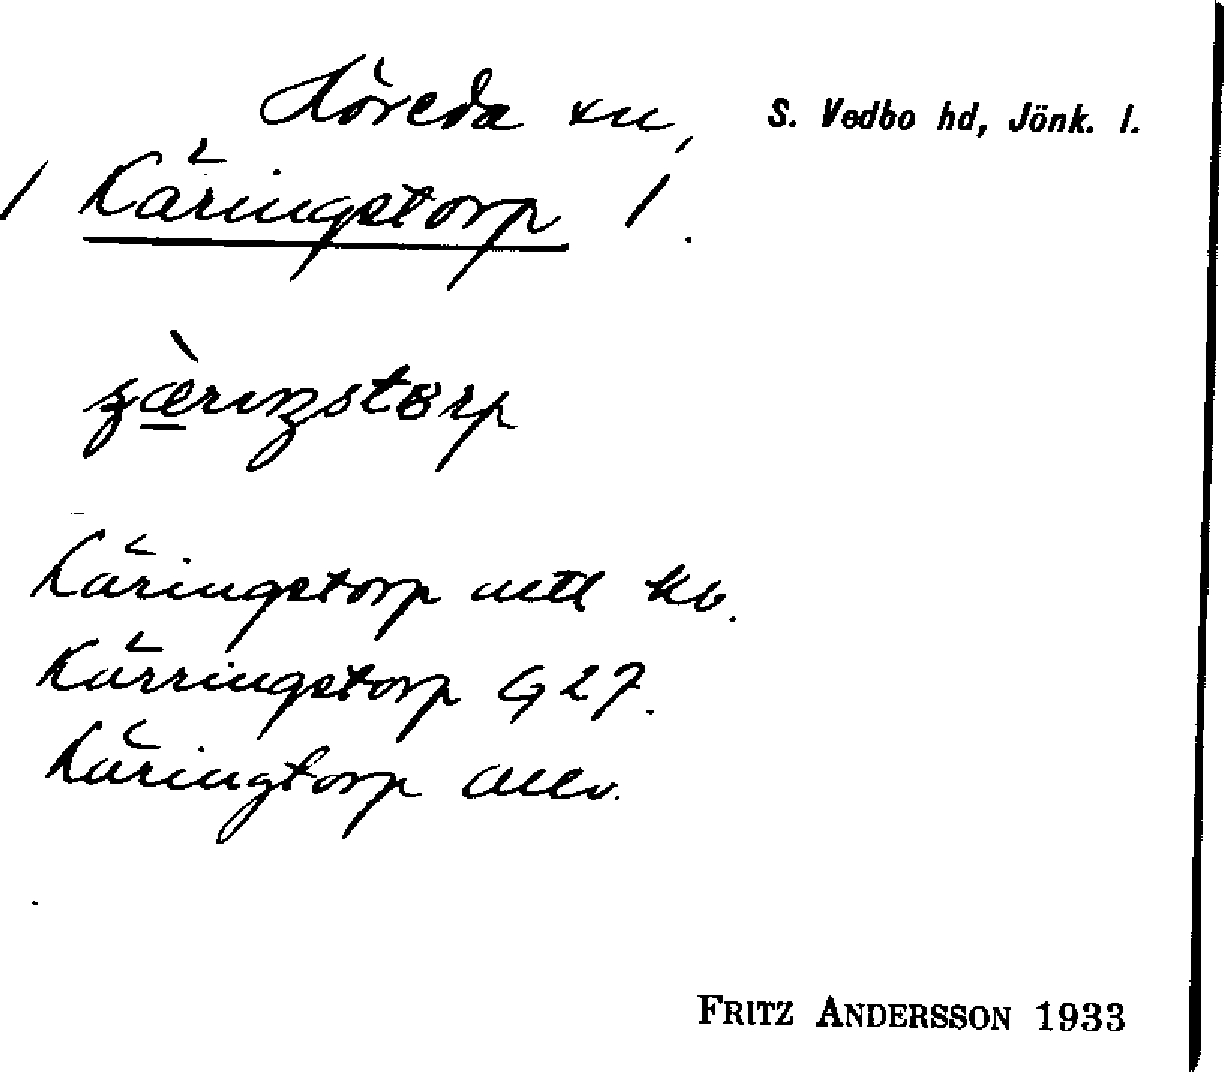 Höreda sn, S. Vedbo hd, Jönk. l.
/ Käringstorp /.
Käringstorp mtl kb.
Kärringstorp G 27.
Käringtorp allm.
FRITZ ANDERSSON 1933